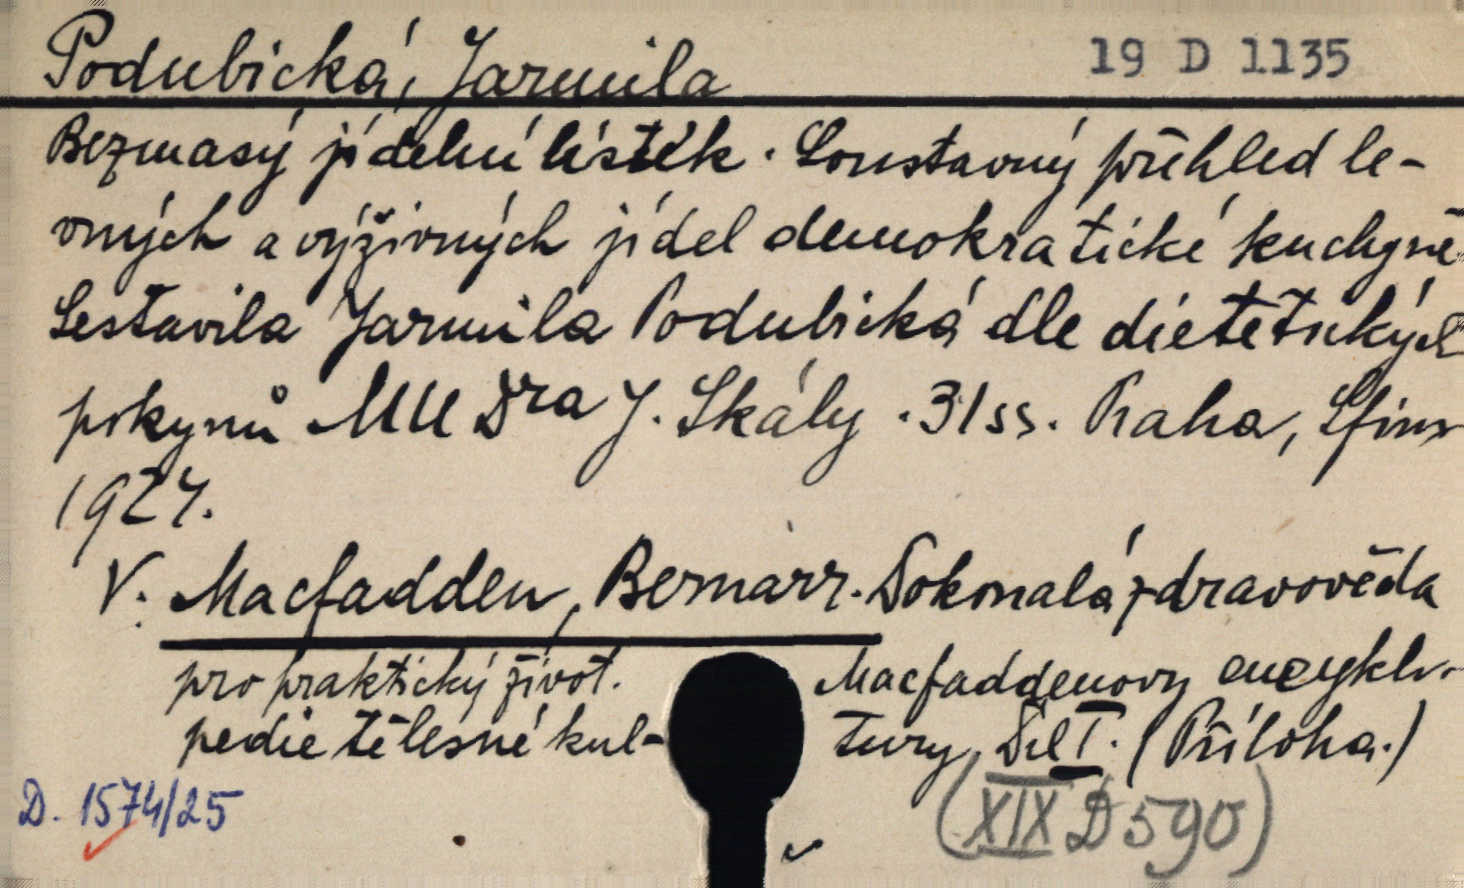 Podubická, Jarmila
19 D 1135
Bezmasý jídelní lístek. Soustavný přehled le-
vných a výživných jídel demokratické kuchyně.
Sestavila Jarmila Podubická dle dietetických
pokynů MUDra J. Skály. 31 ss. Praha, Sfinx
1924.
V: Macfadden, Bernarr. Dokonalá zdravověda
pro praktický život. Macfaddenovy encyklo-
pedie tělesné kul- tury, Díl I. (Příloha.)
D. 1574/25
(XIX D 590)